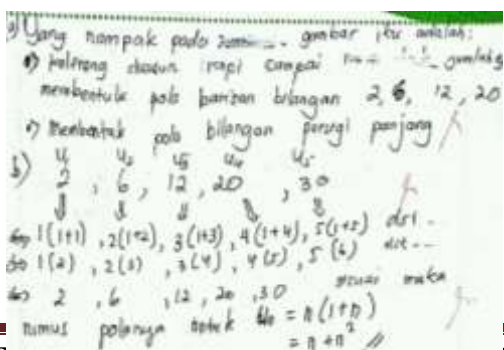 a) Yang nampak pada gambar itu adalah:
1) kelereng disusun rapi sampai
membentuk pola barisan bilangan 2, 6, 12, 20
2) Membentuk pola bilangan persegi panjang
b) U₁ U₂ U₃ U₄ U₅
2 , 6 , 12 , 20 , 30
⇓ ⇓ ⇓ ⇓ ⇓
⇔ 1(1+1) , 2(1+2) , 3(1+3) , 4(1+4) , 5(1+5) dst..
⇔ 1(2) , 2(3) , 3(4) , 4(5) , 5(6) dst--
⇔ 2 , 6 , 12 , 20 , 30 maka
rumus polanya Un = n(1+n)
= n + n² //